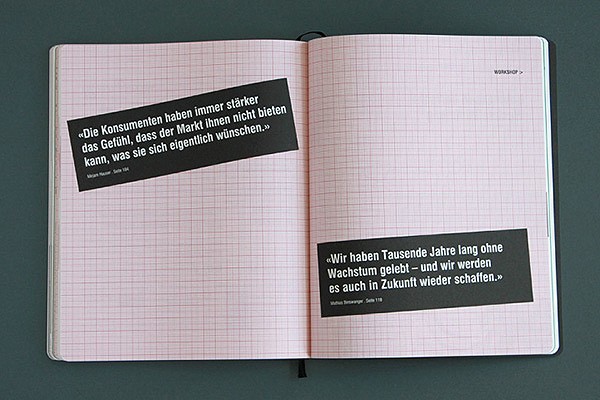 «Die Konsumenten haben immer stärker
das Gefühl, dass der Markt ihnen nicht bieten
kann, was sie sich eigentlich wünschen.»
Mirjam Hauser . Seite 104
WORKSHOP :>
«Wir haben Tausende Jahre lang ohne
Wachstum gelebt – und wir werden
es auch in Zukunft wieder schaffen.»
Mathias Binswanger . Seite 118